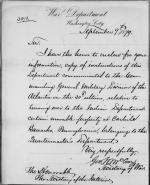 War Department
Washington City
September 9th 1879.
Sir:
I have the honor to enclose for your
information, copy of instructions of this
Department communicated to the Com-
manding General Military Division of the
Atlantic on the 30 ultimo, relative to
turning over to the Interior Department
certain public property at Carlisle
Barracks, Pennsylvania, belonging to the
Quartermaster's Department.
Very respectfully,
Geo. W. McCrary
Secretary of War
The Honorable
The Secretary of the Interior